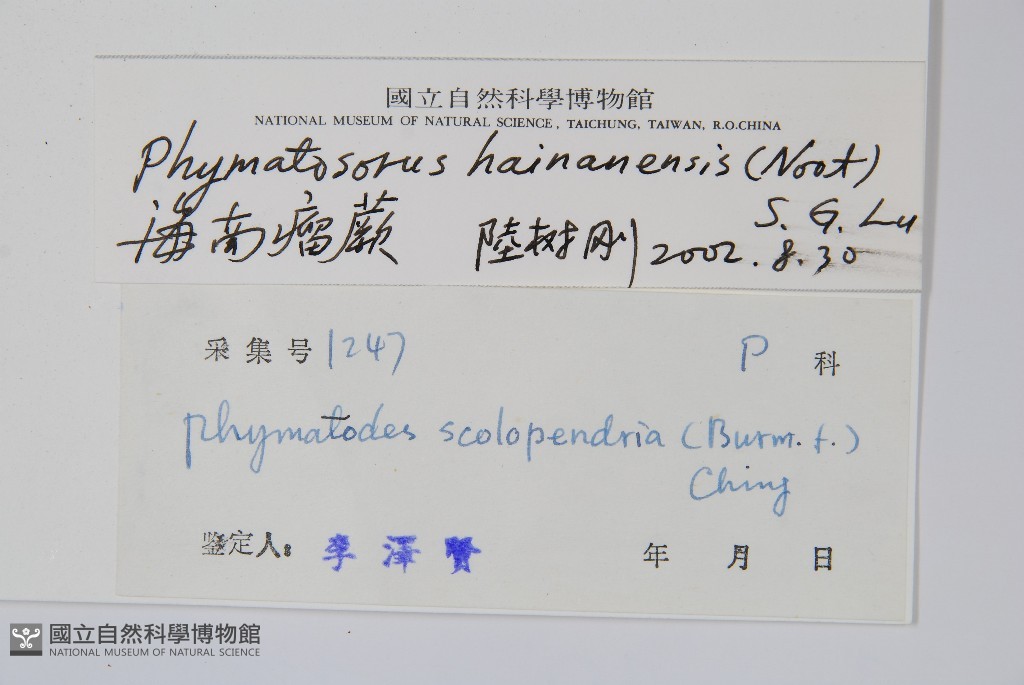 國立自然科學博物館
NATIONAL MUSEUM OF NATURAL SCIENCE, TAICHUNG, TAIWAN, R.O.CHINA
Phymatosorus hainanensis (Noot)
S. G. Lu
海南瘤蕨 陸树刚 2002.8.30
采集号 1247 P 科
phymatodes scolopendria (Burm. f.)
Ching
鉴定人: 李澤賢 年 月 日
國立自然科學博物館
NATIONAL MUSEUM OF NATURAL SCIENCE